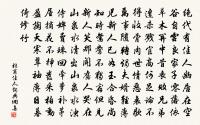 絕代有佳人幽居在空
谷自雲良家子零落依
草木關中昔喪亂兄弟
遭殺戮官高何足論不
得收骨肉世情惡衰歇
萬事隨轉燭夫婿輕薄
兒新人美如玉合昏尚
知時鴛鴦不獨宿但見
新人笑那聞舊人哭在
山泉水清出山泉水濁
侍婢賣珠回牽蘿補茅
屋摘花不插髮采柏動
盈掬天寒翠袖薄日暮
倚修竹
杜甫佳人